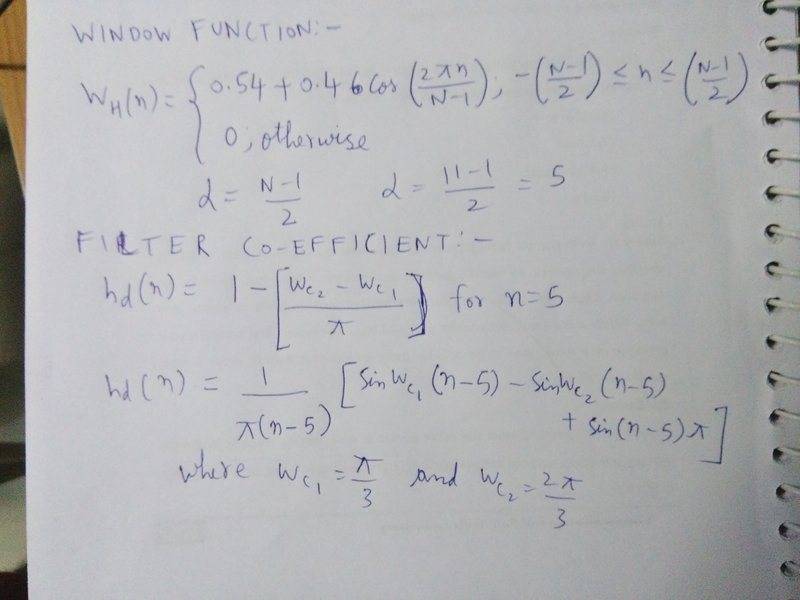 WINDOW FUNCTION:-
W_H(n) = { 0.54 + 0.46 Cos (2πn/N-1); -(N-1/2) ≤ n ≤ (N-1/2)
0; otherwise
α = N-1/2   α = 11-1/2 = 5
FILTER CO-EFFICIENT:-
hd(n) = 1 - [Wc2 - Wc1/π] for n=5
hd(n) = 1/π(n-5) [SinWc1(n-5) - SinWc2(n-5)
+ Sin(n-5)π]
where Wc1 = π/3 and Wc2 = 2π/3